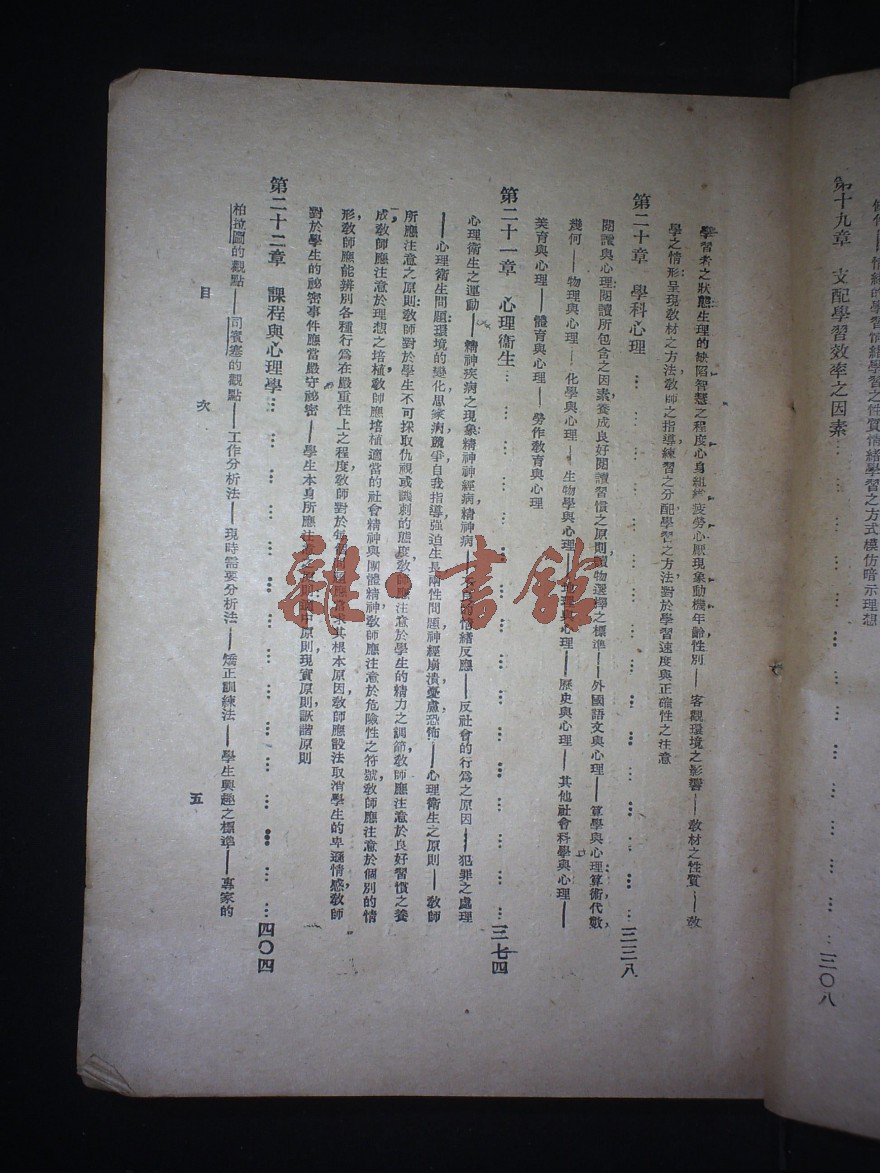 情緒的學習情緒學習之性質情緒學習之方式模仿暗示理想
第十九章 支配學習效率之因素……三〇八
學習者之狀態生理的缺陷智慧之程度心身組織疲勞心厭現象動機年齡性別——客觀環境之影響——教材之性質——教
學之情形:呈現教材之方法,教師之指導,練習之分配,學習之方法,對於學習速度與正確性之注意
第二十章 學科心理……三三八
閱讀與心理:閱讀所包含之因素,養成良好閱讀習慣之原則,讀物選擇之標準——外國語文與心理——算學與心理:算術,代數,
幾何——物理與心理——化學與心理——生物學與心理——地理與心理——歷史與心理——其他社會科學與心理——
美育與心理——體育與心理——勞作教育與心理
第二十一章 心理衞生……三七四
心理衞生之運動——精神疾病之現象:精神神經病,精神病——不良的情緒反應——反社會的行爲之原因——犯罪之處理
——心理衞生問題:環境的變化,思家病,競爭,自我指導,強迫生長,兩性問題,神經崩潰,憂慮,恐怖——心理衞生之原則——教師
所應注意之原則:教師對於學生不可採取仇視或譏刺的態度,教師應注意於學生的精力之調節,教師應注意於良好習慣之養
成,教師應注意於理想之培植,教師應培植適當的社會精神與團體精神,教師應注意於危險性之符號,教師應注意於個別的情
形,教師應能辨別各種行爲在嚴重性上之程度,教師對於每個問題應當求其根本原因,教師應設法取消學生的卑遜情感,教師
對於學生的祕密事件應當嚴守祕密——學生本身所應注意之原則:適中原則,現實原則,詼諧原則
第二十二章 課程與心理學……四〇四
柏拉圖的觀點——司賓塞的觀點——工作分析法——現時需要分析法——矯正訓練法——學生興趣之標準——專家的
目次 五
雜·書館